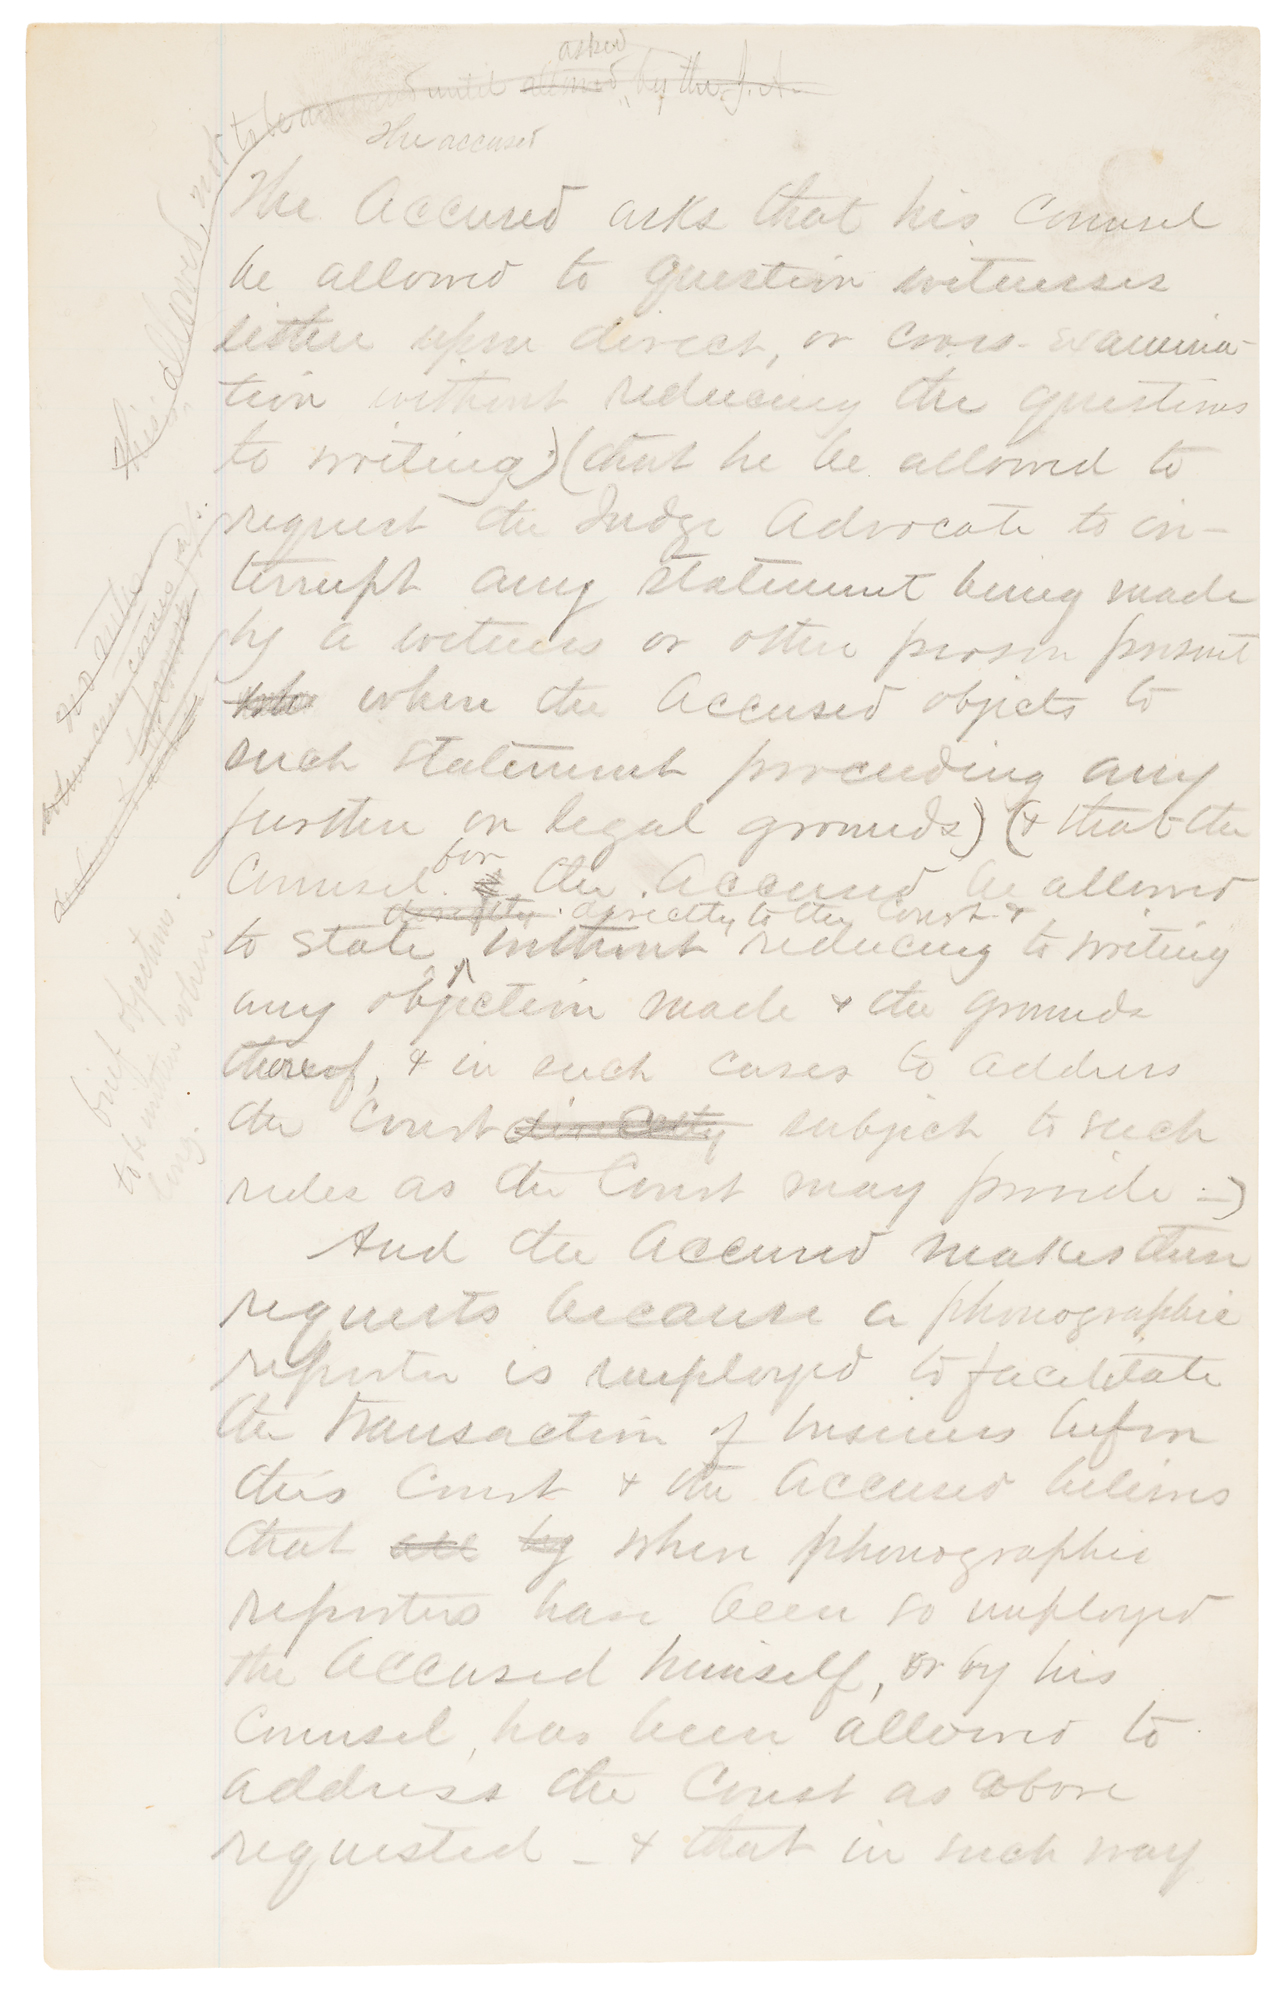 asked
to be answered until allowed by the J. A.
The accused
This allowed, not
The Accused asks that his Counsel
be allowed to question witnesses
either upon direct, or cross-examina-
tion without reducing the questions
to writing) (that he be allowed to
request the Judge Advocate to in-
terrupt any statement being made
by a witness or other person present
where the Accused objects to
such statement proceeding any
further on legal grounds) (& that the
for
Counsel the Accused be allowed
directly directly to the Court &
to state without reducing to writing
any objection made & the grounds
thereof, & in such cases to address
the Court directly subject to such
rules as the Court may provide -)
And the Accused makes these
requests because a phonographic
reporter is employed to facilitate
the transaction of business before
this Court & the Accused believes
that all by when phonographic
reporters have been so employed
the Accused himself, or by his
Counsel, has been allowed to
address the Court as above
requested - & that in such way
brief objections.
to be written when